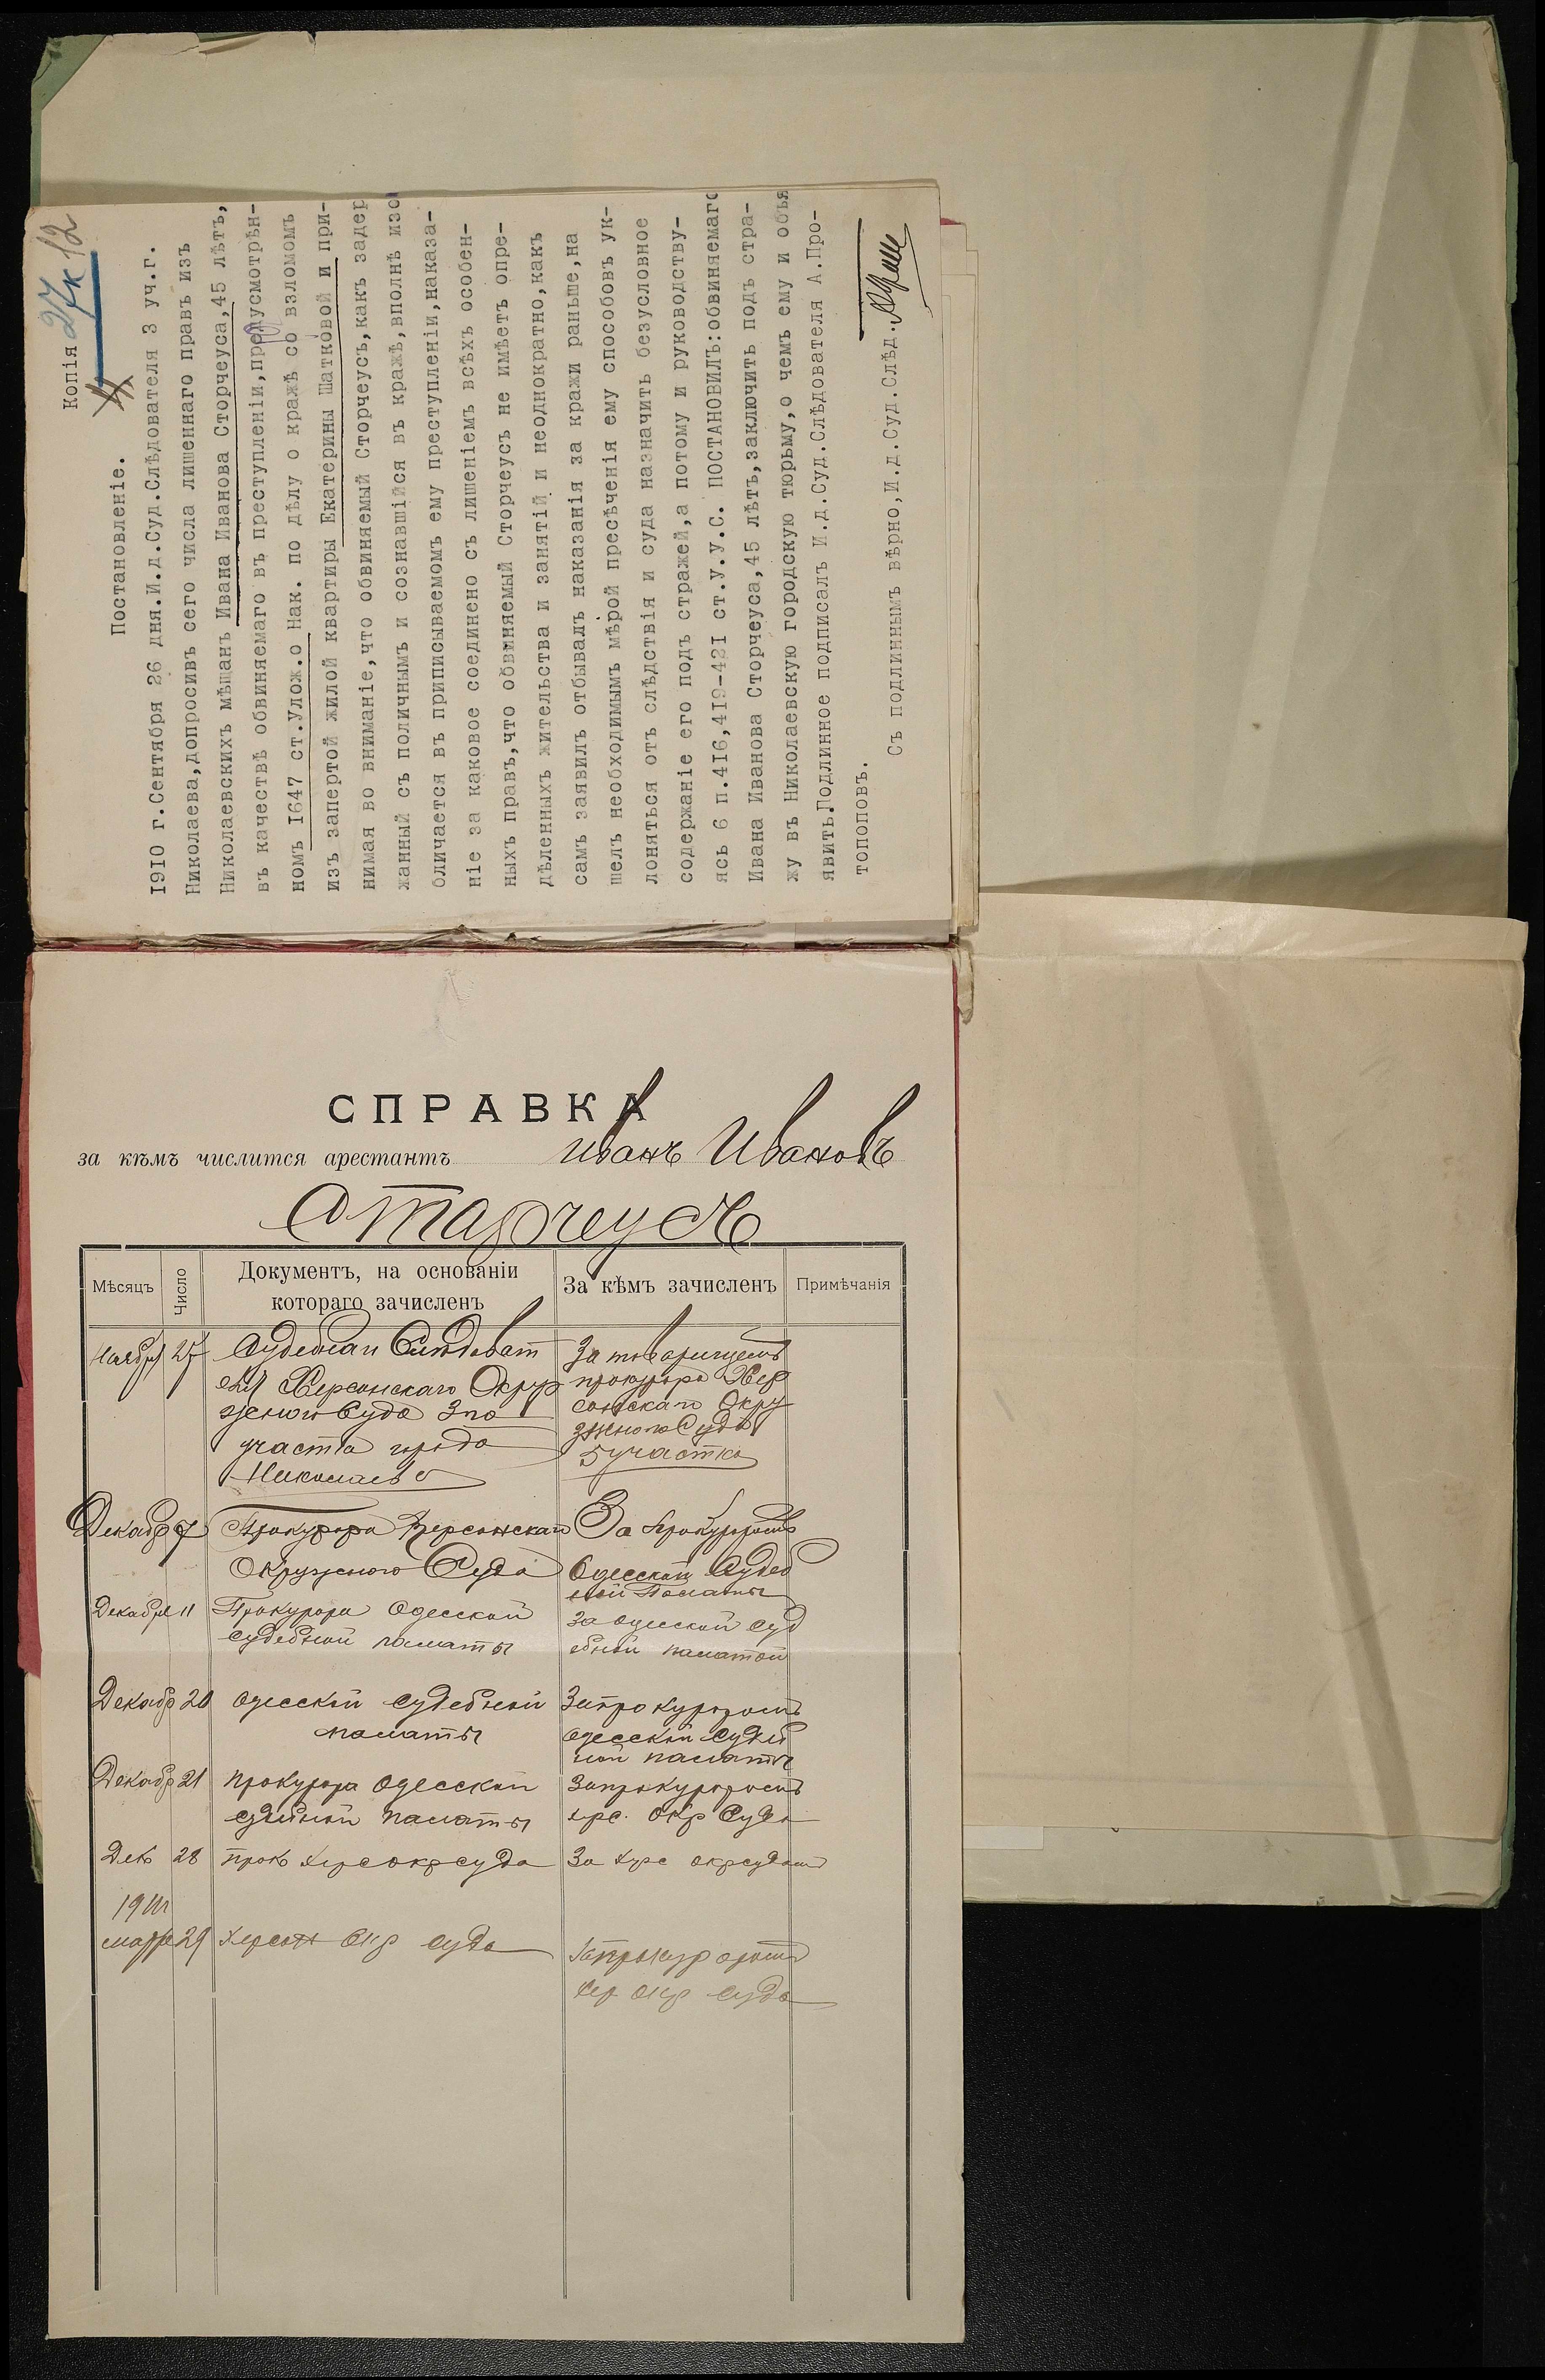 Копія
27/к 12
Постановленіе.
1910 г.Сентября 26 дня.И.д.Суд.Слѣдователя 3 уч.г.
Николаева,допросивъ сего числа лишеннаго правъ изъ
Николаевскихъ мѣщанъ Ивана Иванова Сторчеуса,45 лѣтъ,
въ качествѣ обвиняемаго въ преступленіи,предусмотрѣн-
номъ 1647 ст.Улож.о Нак. по дѣлу о кражѣ со взломомъ
изъ запертой жилой квартиры Екатерины Шатковой и при-
нимая во вниманіе,что обвиняемый Сторчеусъ,какъ задер
жанный съ поличнымъ и сознавшійся въ кражѣ,вполнѣ изо
бличается въ приписываемомъ ему преступленіи,наказа-
ніе за каковое соединено съ лишеніемъ всѣхъ особен-
ныхъ правъ,что обвиняемый Сторчеусъ не имѣетъ опре-
дѣленныхъ жительства и занятій и неоднократно,какъ
самъ заявилъ отбывалъ наказанія за кражи раньше,на
шелъ необходимымъ мѣрой пресѣченія ему способовъ ук-
лоняться отъ слѣдствія и суда назначить безусловное
содержаніе его подъ стражей,а потому и руководству-
ясь 6 п.416,419-421 ст.У.У.С. ПОСТАНОВИЛЪ:обвиняемаго
Ивана Иванова Сторчеуса,45 лѣтъ,заключить подъ стра-
жу въ Николаевскую городскую тюрьму,о чемъ ему и объя
явить.Подлинное подписалъ И.д.Суд.Слѣдователя А.Про-
топоповъ.
Съ подлиннымъ вѣрно,И.д.Суд.Слѣд.
СПРАВКА
за кѣмъ числится арестантъ Иванъ Ивановъ
Старчеусъ
Мѣсяцъ Число Документъ, на основаніи котораго зачисленъ За кѣмъ зачисленъ Примѣчанія
27 Судебнаи Слѣдоват За товарищемъ
еля Херсонскаго Окру прокурора Хер
жного Суда 3го сонскаго Окру
участка города жного Суда
Николаева 5 участка
Декабр 7 Прокурора Херсонскаго За Прокуроромъ
Окружного Суда Одесской Судеб
ной Палаты
Декабря 11 Прокурора Одесской За Одесской Суд
судебной палаты ебной палатой
Декабр 20 Одесской судебной За прокуроромъ
палаты Одесской Судеб
ной палаты
Декабр 21 прокурора Одесской За прокуроромъ
судебной палаты Хрс. Окр Суда
Дек 28 прок Херс окр суда За Хрс окр судомъ
1911
марта 29 Херсон Окр суда За прокуроромъ
Хер окр суда